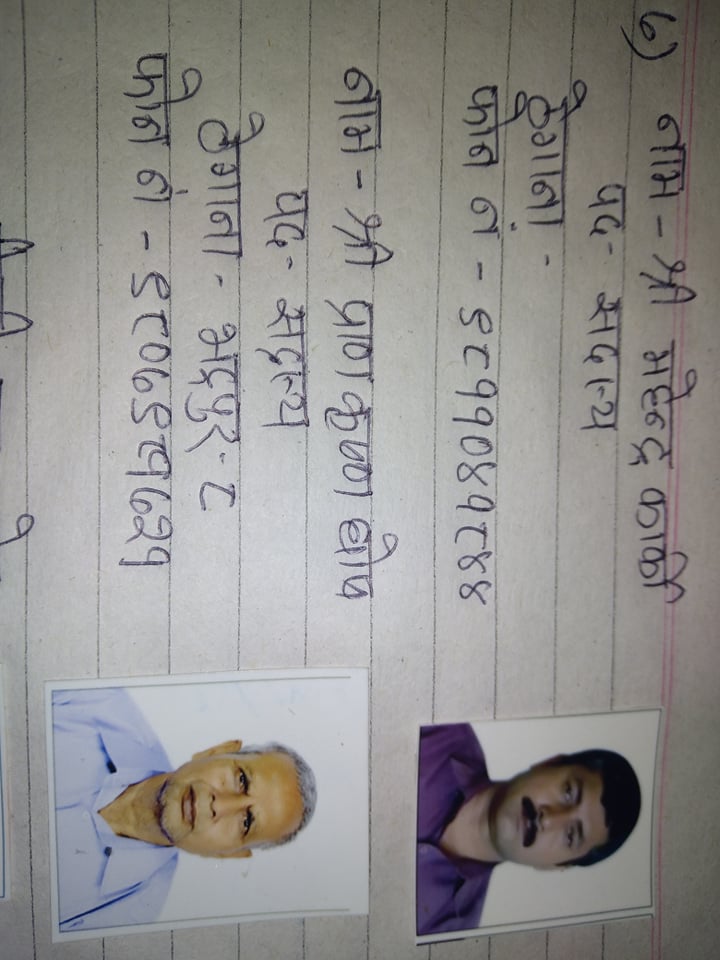 ७) नाम - श्री महेन्द्र कार्की
पद - सदस्य
ठेगाना -
फोन नं - ९८११०४१८४४
नाम - श्री प्राण कृष्ण घोष
पद - सदस्य
ठेगाना - भद्रपुर - ८
फोन नं - ९८०७९८१७२१